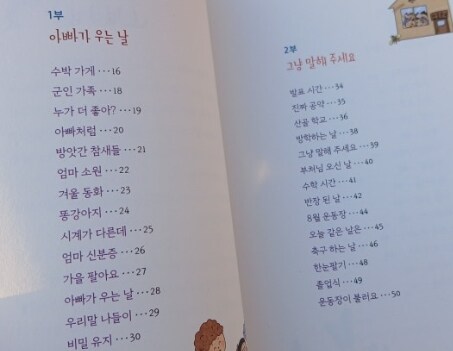 1부
아빠가 우는 날
수박 가게 ···16
군인 가족 ···18
누가 더 좋아? ···19
아빠처럼 ···20
방앗간 참새들 ···21
엄마 소원 ···22
겨울 동화 ···23
똥강아지 ···24
시계가 다른데 ···25
엄마 신분증 ···26
가을 팔아요 ···27
아빠가 우는 날 ···28
우리말 나들이 ···29
비밀 유지 ···30
2부
그냥 말해 주세요
발표 시간 ···34
진짜 공약 ···35
산골 학교 ···36
방학하는 날 ···38
그냥 말해 주세요 ···39
부처님 오신 날 ···40
수학 시간 ···41
반장 된 날 ···42
8월 운동장 ···44
오늘 같은 날은 ···45
축구 하는 날 ···46
한눈팔기 ···48
졸업식 ···49
운동장이 불러요 ···50